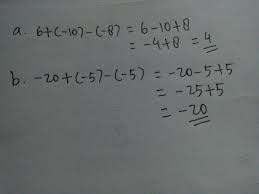 a. 6+(-10)-(-8) = 6-10+8
= -4+8 = 4
b. -20+(-5)-(-5) = -20-5+5
= -25+5
= -20